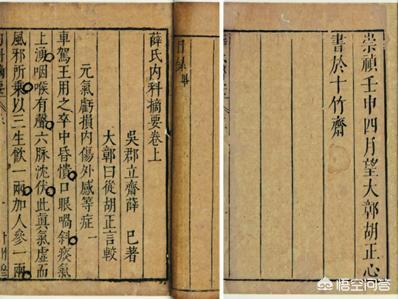 崇禎壬申四月望大鄣胡正心
書於十竹齋
目録畢
薛氏内科摘要卷上
吳郡立齋薛 已著
大鄣曰從胡正言較
元氣虧損内傷外感等症一
車駕王用之卒中昏憒口眼喎斜痰氣
上湧咽喉有聲六脉沈伏此真氣虛而
風邪所乘以三生飲一兩加人參一兩
悟空问答